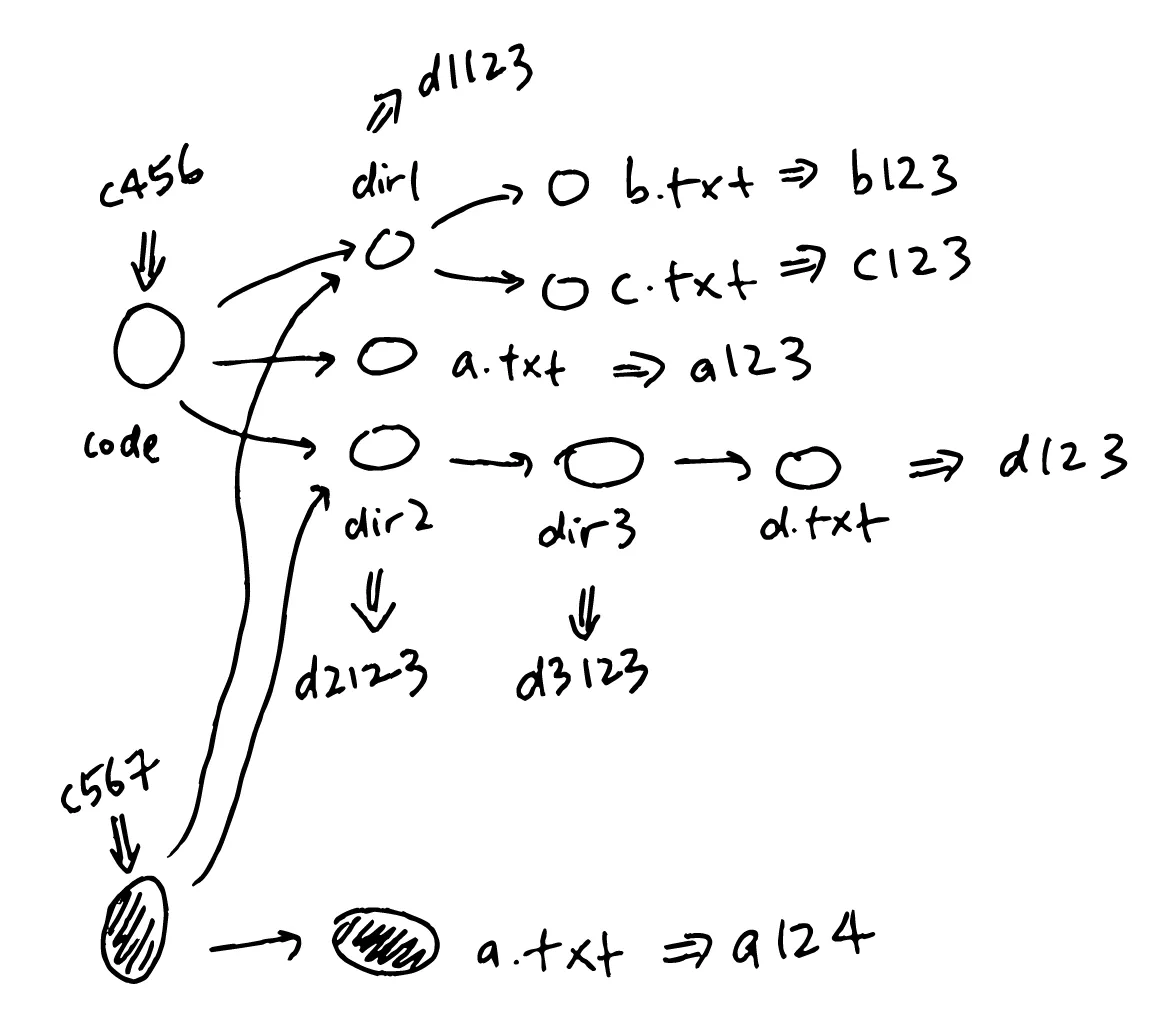 d1123
c456
dir1
b.txt ⇒ b123
c.txt ⇒ c123
a.txt ⇒ a123
code
d.txt ⇒ d123
dir2
dir3
d2123
d3123
c567
a.txt ⇒ a124